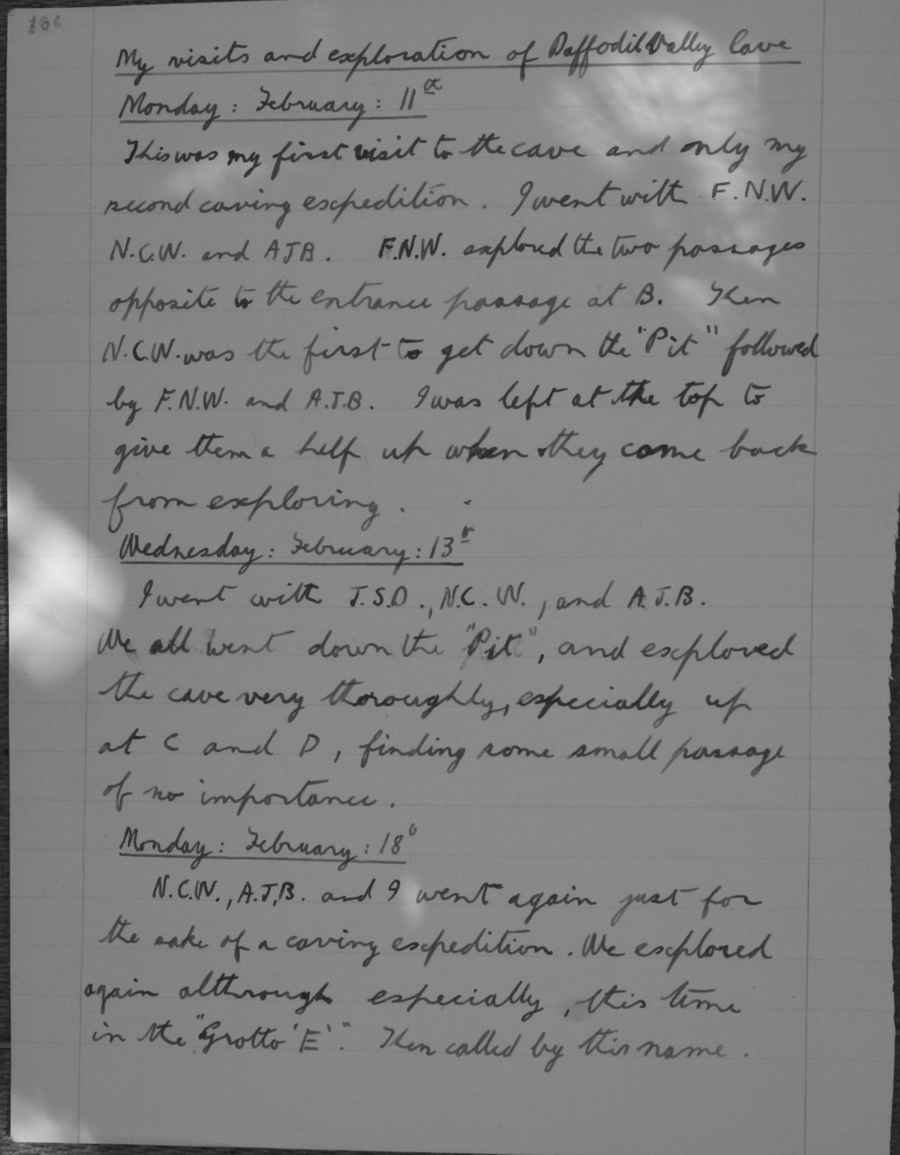 186
My visits and exploration of Daffodil Valley Cave
Monday: February: 11th
This was my first visit to the cave and only my
second caving expedition. I went with F.N.W.
N.C.W. and AJB. F.N.W. explored the two passages
opposite to the entrance passage at B. Then
N.C.W. was the first to get down the "Pit" followed
by F.N.W. and A.J.B. I was left at the top to
give them a help up when they came back
from exploring.
Wednesday: February: 13th
I went with J.S.D., N.C.W., and A.J.B.
We all went down the "Pit", and explored
the cave very thoroughly, especially up
at C and D, finding some small passage
of no importance.
Monday: February: 18
N.C.W., A.J.B. and I went again just for
the sake of a caving expedition. We explored
again althrough especially, this time
in the "Grotto 'E'". Then called by this name.